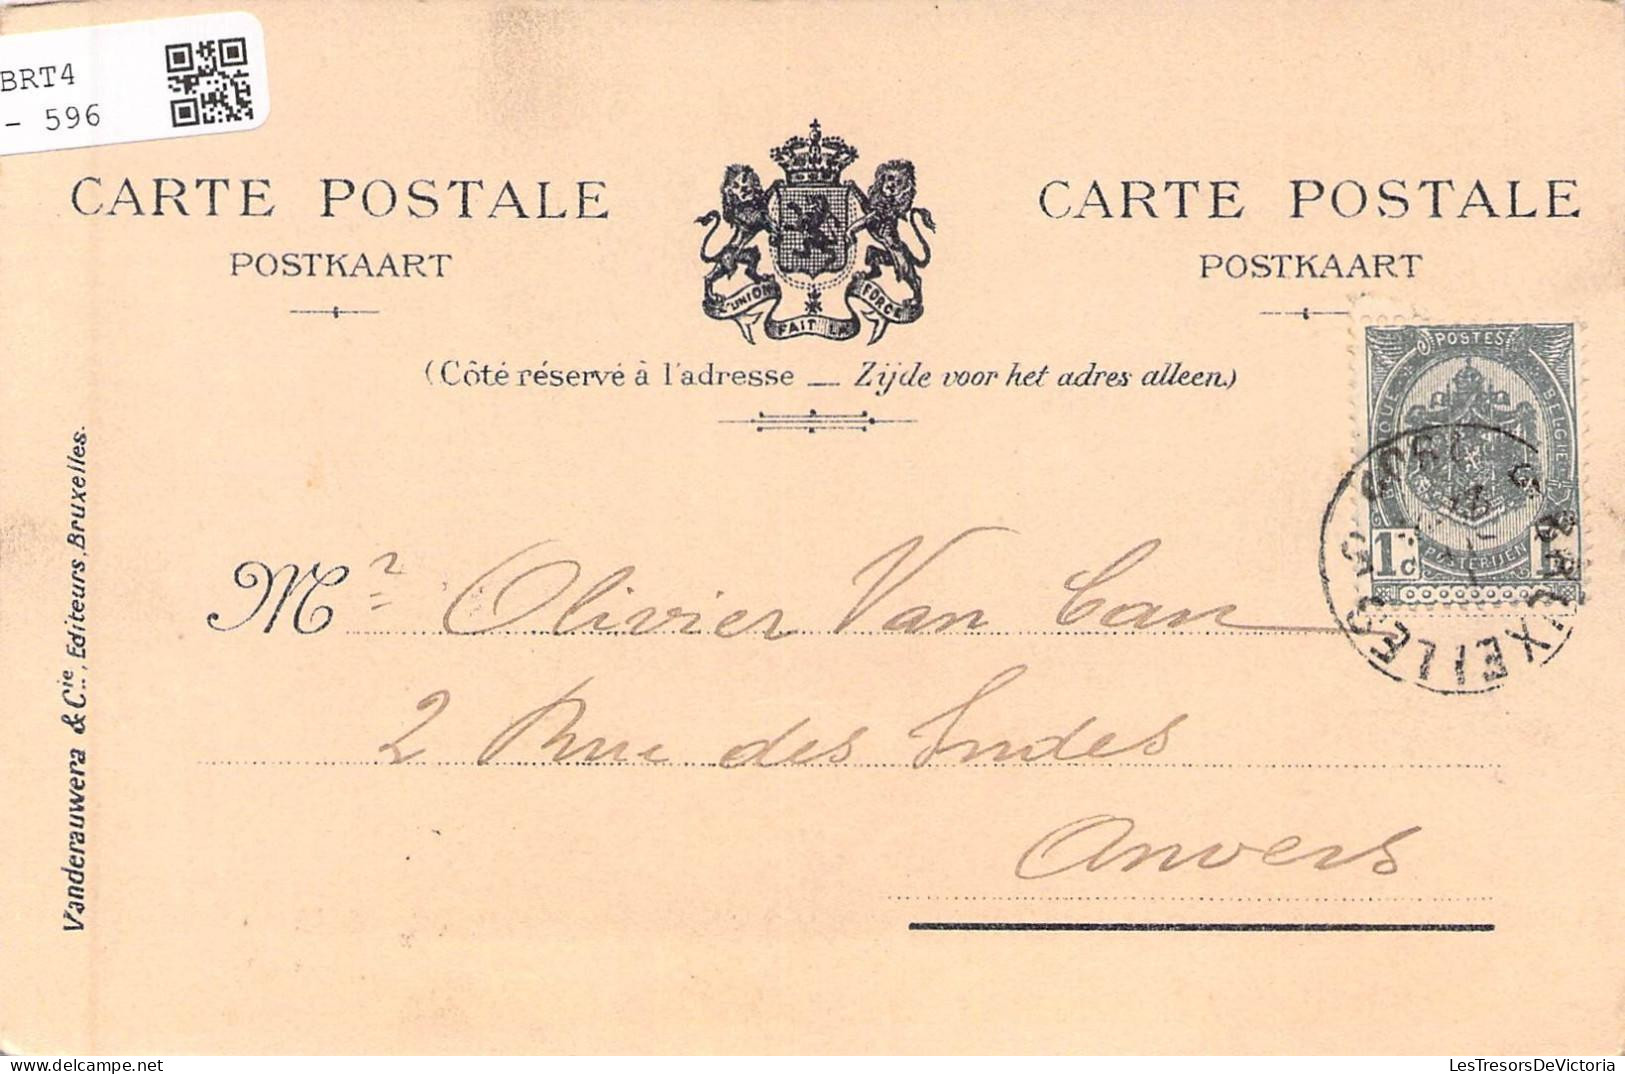 BRT4
- 596
CARTE POSTALE
POSTKAART
CARTE POSTALE
POSTKAART
L'UNION FAIT LA FORCE
(Côté réservé à l'adresse — Zijde voor het adres alleen.)
POSTES
BELGIQUE BELGIE
POSTERIJEN
1c
BRUXELLES
Vanderauwera & Cie., Editeurs, Bruxelles.
Mr Olivier Van Can
2 Rue des Indes
Anvers
LesTresorsDeVictoria